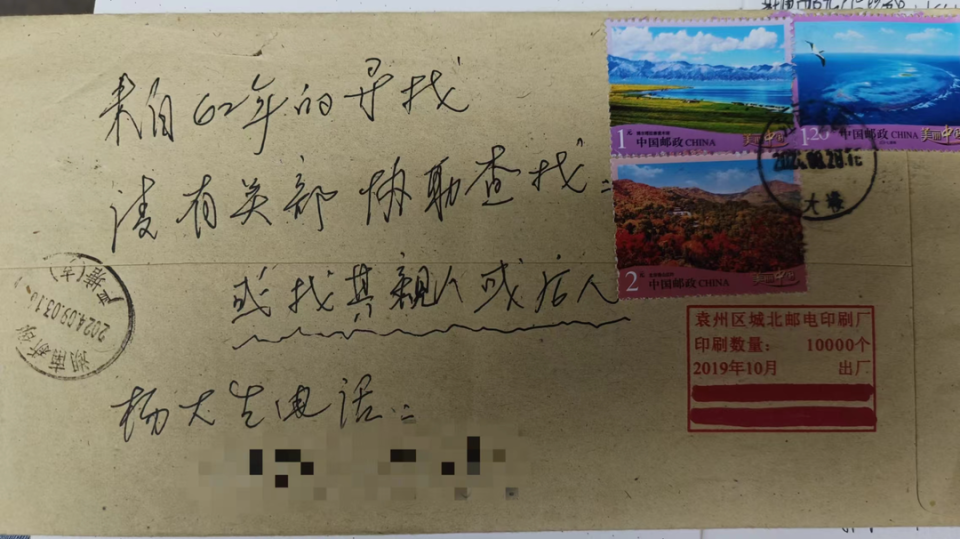 来自62年的寻找
请有关部协助查找:
或找其亲人或后人
杨大生电话:
1元
中国邮政 CHINA
美丽中国
1.20
中国邮政 CHINA
美丽中国
2元
中国邮政 CHINA
美丽中国
大塘
2024.09.03.10
湖南新邵
袁州区城北邮电印刷厂
印刷数量: 10000个
2019年10月 出厂